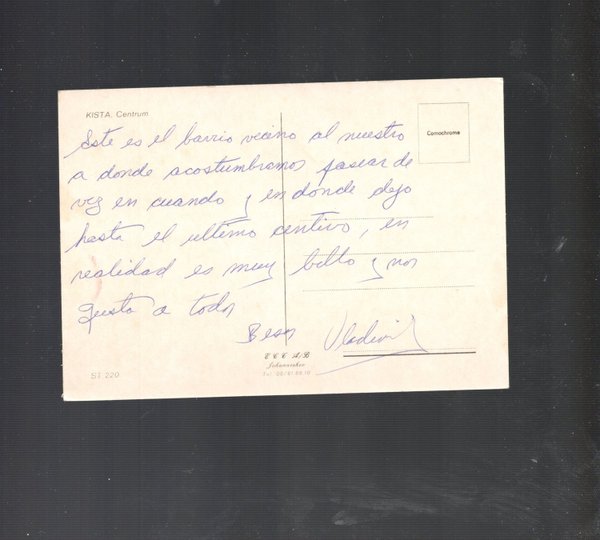 KISTA. Centrum
Comochrome
Este es el barrio vecino al nuestro
a donde acostumbramos pasear de
vez en cuando y en donde dejo
hasta el ultimo centivo, en
realidad es muy bello y nos
gusta a todos
Besos Vladimir
E C C A/B
ST 220